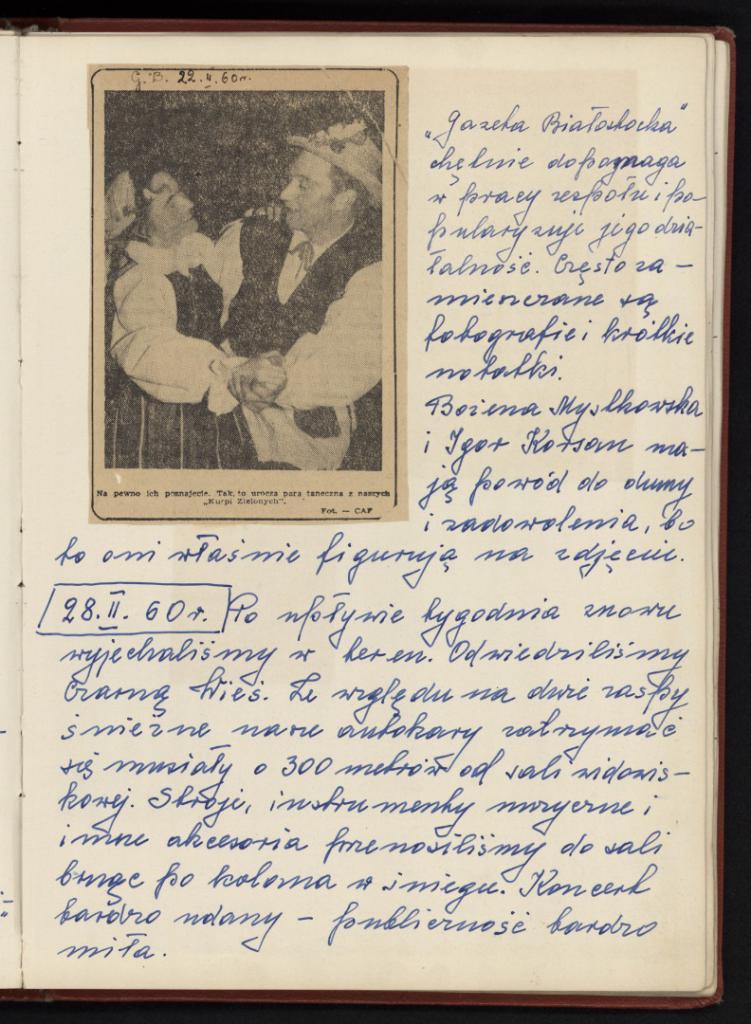 G.B. 22.II.60r.
Na pewno ich poznajecie. Tak, to urocza para taneczna z naszych
„Kurpi Zielonych".
Fot. — CAF
„Gazeta Białostocka"
chętnie dopomaga
w pracy zespołu i po-
pularyzuje jego dzia-
łalność. Często za-
mieszczane są
fotografie i krótkie
notatki.
Bożena Myslkowska
i Igor Korsan ma-
ją powód do dumy
i zadowolenia, bo
to oni właśnie figurują na zdjęciu.
28.II.60r. Po upływie tygodnia znowu
wyjechaliśmy w teren. Odwiedziliśmy
Czarną Wieś. Ze względu na duże zaspy
śnieżne nasze autokary zatrzymać
się musiały o 300 metrów od sali widowis-
kowej. Stroje, instrumenty muzyczne i
inne akcesoria przenosiliśmy do sali
brnąc po kolana w śniegu. Koncert
bardzo udany – publiczność bardzo
miła.